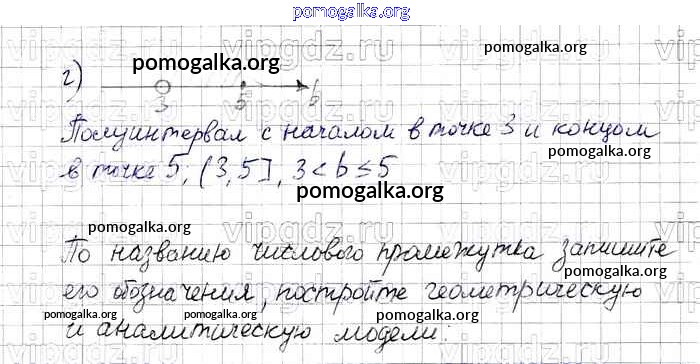 pomogalka.org
г) pomogalka.org
3 5 b
Полуинтервал с началом в точке 3 и концом
в точке 5, (3,5], 3<b≤5
pomogalka.org
pomogalka.org pomogalka.org
По названию числового промежутка запишите
pomogalka.org
его обозначения, постройте геометрическую
и аналитическую модели:
pomogalka.org
vipgdz.ru